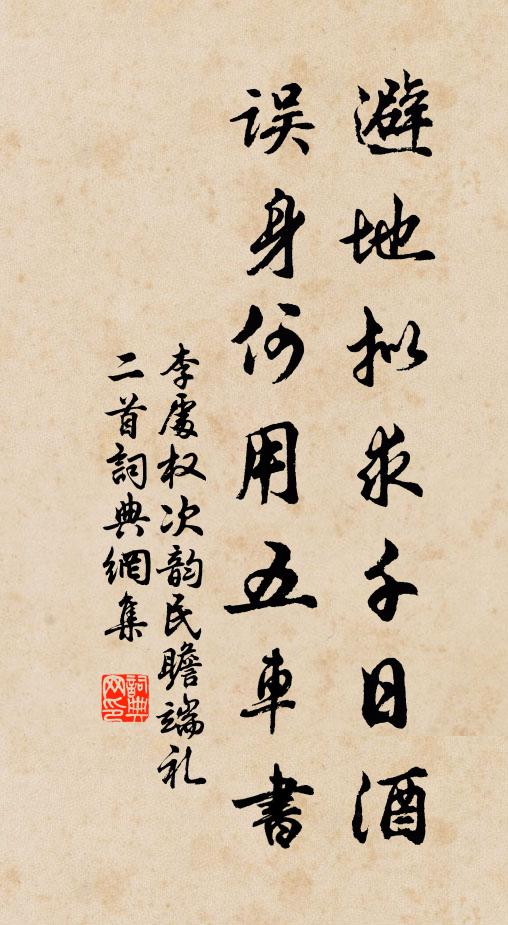 避地拟求千日酒
误身何用五車書
李處权次韵民瞻端礼
二首詞典網集
詞典网印